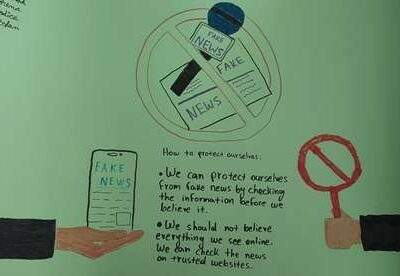 FAKE
NEWS
FAKE
NEWS
How to protect ourselves:
• We can protect ourselves
from fake news by checking
the information before we
believe it.
• We should not believe
everything we see online.
We can check the news
on trusted websites.
FAKE
NEWS